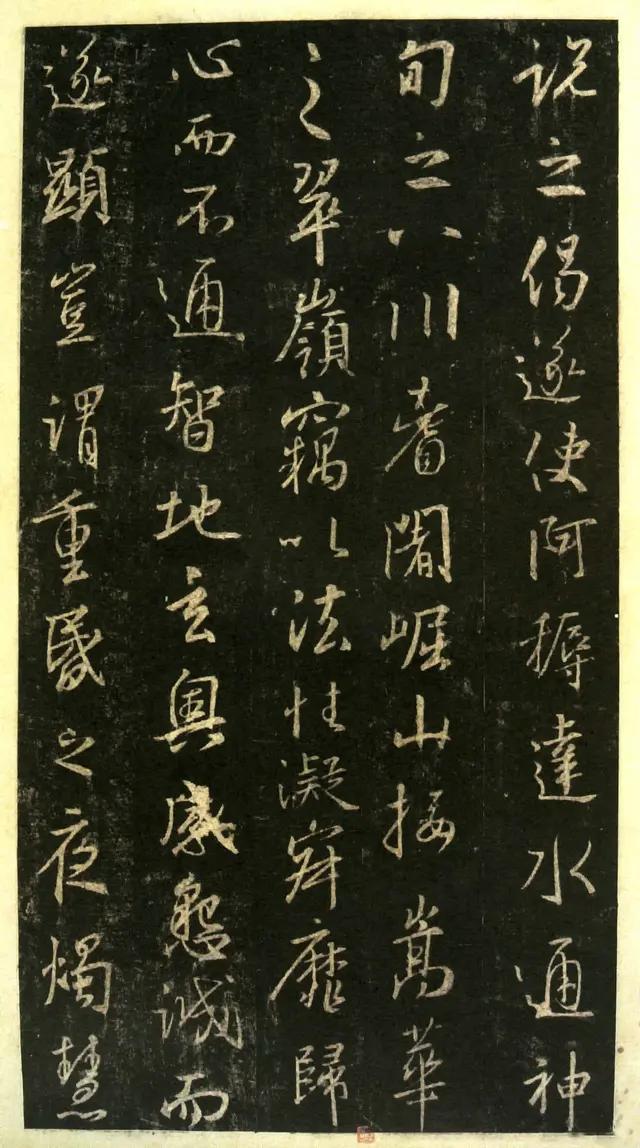 说之偈遂使阿耨達水通神
甸之八川耆闍崛山接嵩華
之翠嶺竊以法性凝寂靡歸
心而不通智地玄奧感懇誠而
遂顯豈謂重昏之夜燭慧